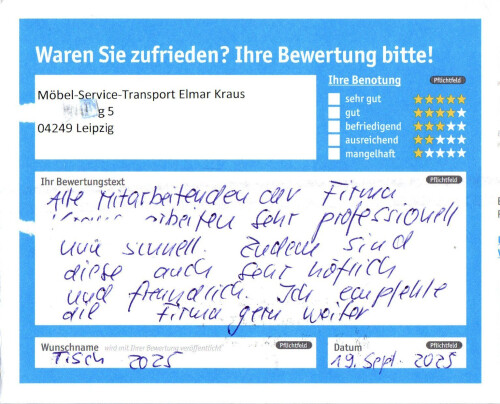 Waren Sie zufrieden? Ihre Bewertung bitte!
Möbel-Service-Transport Elmar Kraus
g 5
04249 Leipzig
Ihre Benotung Pflichtfeld
sehr gut
gut
befriedigend
ausreichend
mangelhaft
Ihr Bewertungstext Pflichtfeld
Alle Mitarbeitenden der Firma
arbeiten sehr professionell
und schnell. Zudem sind
diese auch sehr höflich
und freundlich. Ich empfehle
die Firma gern weiter
Wunschname wird mit Ihrer Bewertung veröffentlicht Pflichtfeld
Tisch 2025
Datum Pflichtfeld
19. Sept. 2025